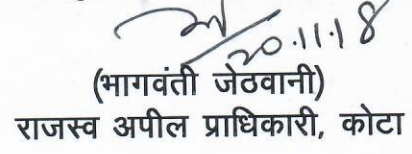 20.11.18
(भागवंती जेठवानी)
राजस्व अपील प्राधिकारी, कोटा